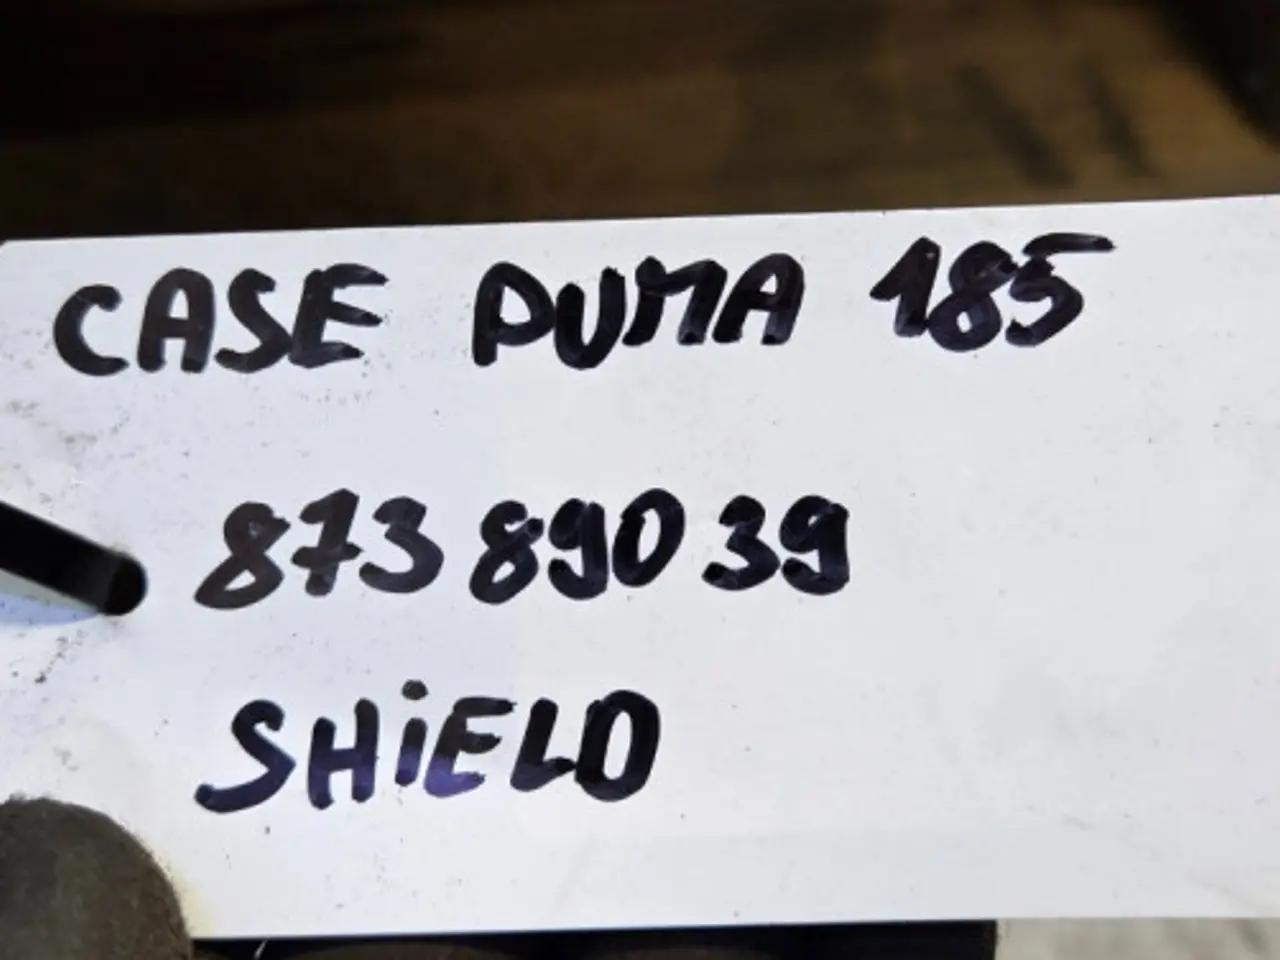 CASE PUMA 185
87389039
SHiELD